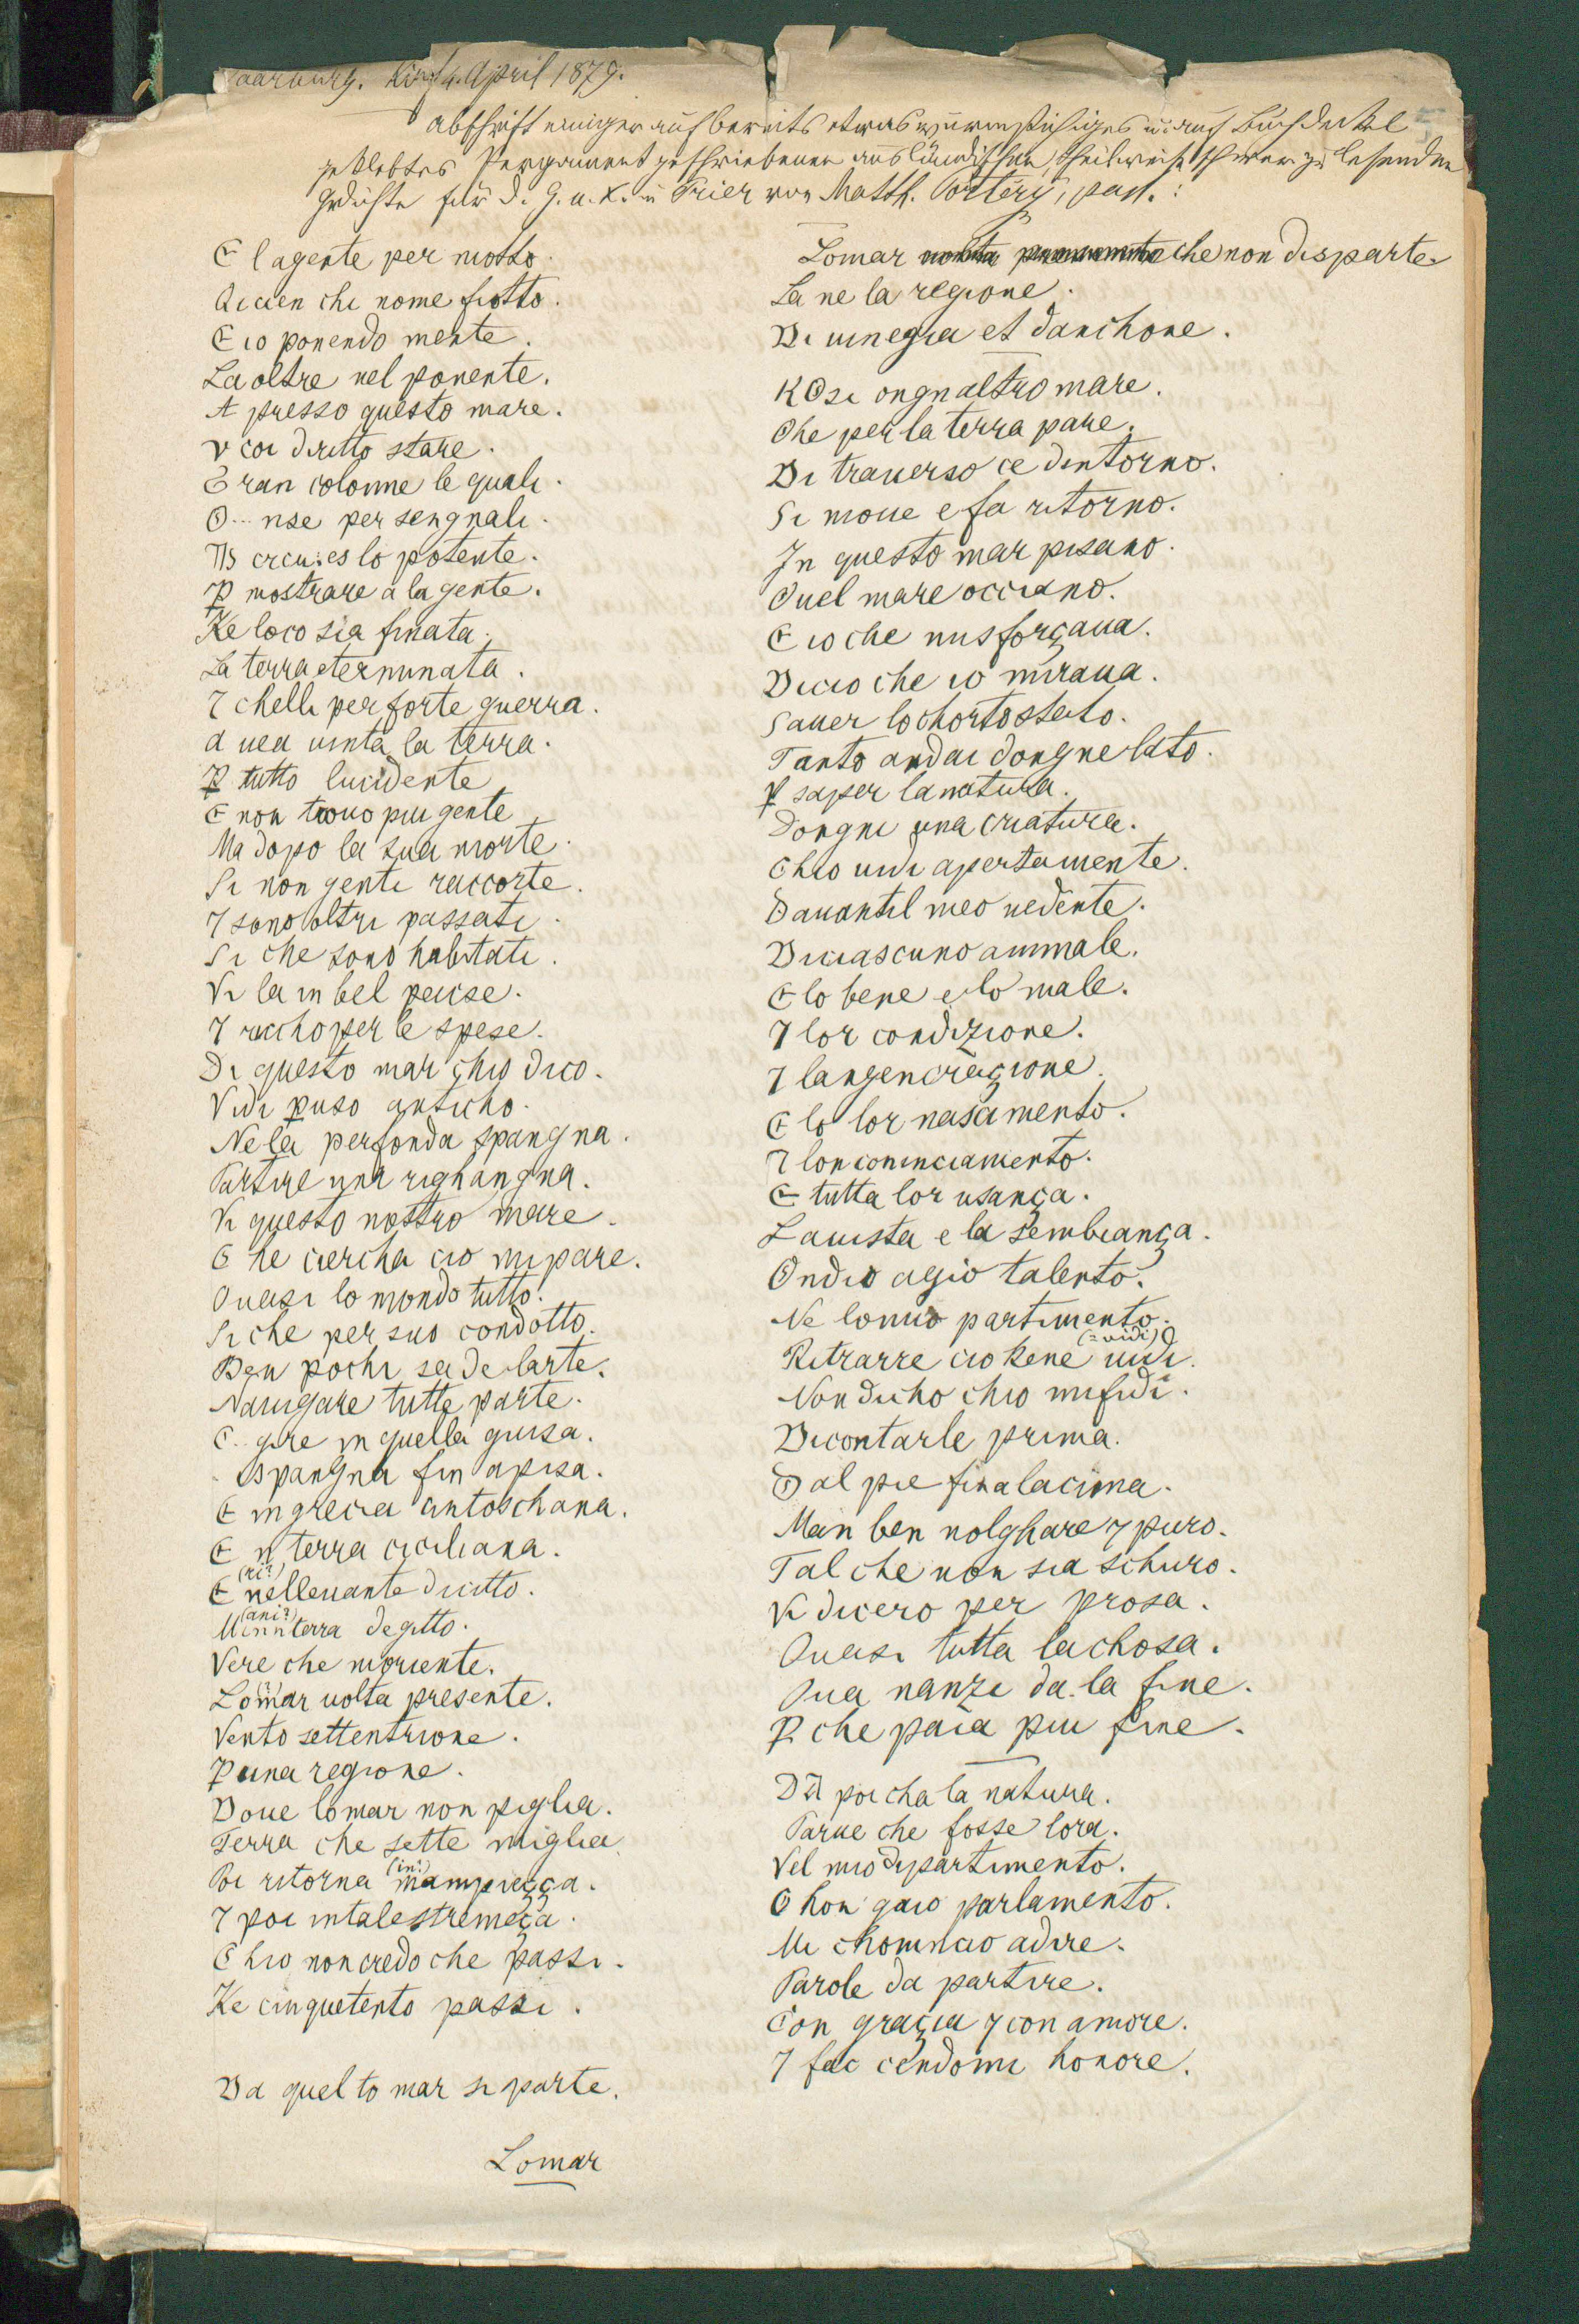 Saarburg. 4. April 1879.
Abschrift einiger auf bereits etwas wurmstichiges u. auf Buchdeckel
geklebtes Pergament geschriebener ausländischer, theilweise schwer zu lesender
Gedichte für d. G. u. K. in Trier von Matth. :
E l agente per motto.
Dicien chi nome fiotto.
E io ponendo mente.
La oltre nel ponente.
A presso questo mare.
v coi diritto stare.
E ran colonne le quali.
O... nse per sengnali.
es lo potente.
ꝑ mostrare a la gente.
Ke loco sia finata.
La terra eterminata.
7 chelli per forte guerra.
a uea uinta la terra.
ꝑ tutto lucidente
E non trouo piu gente
Ma dopo la sua morte.
Si non genti raccorte.
7 sono oltri passati.
Si che sono habitati.
Vi la in bel paise.
7 richo per le spese.
Di questo mar chio dico.
Vidi ꝑuso anticho.
Ne la perfonda spangna.
Partire una righangna.
Vi questo nostro mare.
C he ciercha cio mi pare.
Quasi lo mondo tutto.
Si che per suo condotto.
Ben pochi sa de larte.
Nauigare tutte parte.
C.. gire in quella guisa.
Ispangna fin apisa.
E ingrecia intoschana.
E n terra ciciliana.
(ni?)
E nelleuante dricitto.
(ani?)
Minn terra degitto.
Vere che moriente.
Lomar uolta presente.
Vento settentrione.
ꝑ una regione.
Doue lomar non piglia.
Terra che sette miglia.
(in?)
Poi ritorna mampiezça.
7 poi intalestremeça.
C hio non credo che passi.
Ke cinquetento passi.
Da quel to mar si parte.
Lomar
Lomar che non disparte.
La ne la regione.
Di uinegia et danchone.
KOsi ongnaltro mare.
Che per la terra pare.
Di trauerso ce dintorno.
Si moue e fa ritorno.
In questo mar pisano.
Quel mare occiano.
E io che misforçaua.
Dicio che io miraua.
Sauer lo chorto stato.
Tanto andai dongne lato.
ꝑ saper lanatura.
Dongni una criatura.
Chio uidi apertamente.
Dauantil meo uedente.
Diciascuno animale.
E lo bene e lo male.
7 lor condizione.
7 langeneraçione.
E lo lor nascimento.
7 lon cominciamento.
E tutta lor usança.
Lauista e la sembiança.
Ondio agio talento.
Ne lo mio partimento.
(= vidi)
Ritrarre cio kene uidi.
Non dicho chio mi fidi.
Dicontarle prima.
Dal pie fin a lacima.
Man ben uolghare 7 puro.
Tal che non sia schuro.
Vi dicero per prosa.
Quasi tutta lachosa.
Qua nanzi da la fine.
P. che paia piu fine.
Da poi cha la natura.
Parue che fosse lora.
Vel mio dipartimento.
C hon gaio parlamento.
Mi chomincio adire.
Parole da partire.
Con graçia 7 con amore.
7 fac cendomi honore.